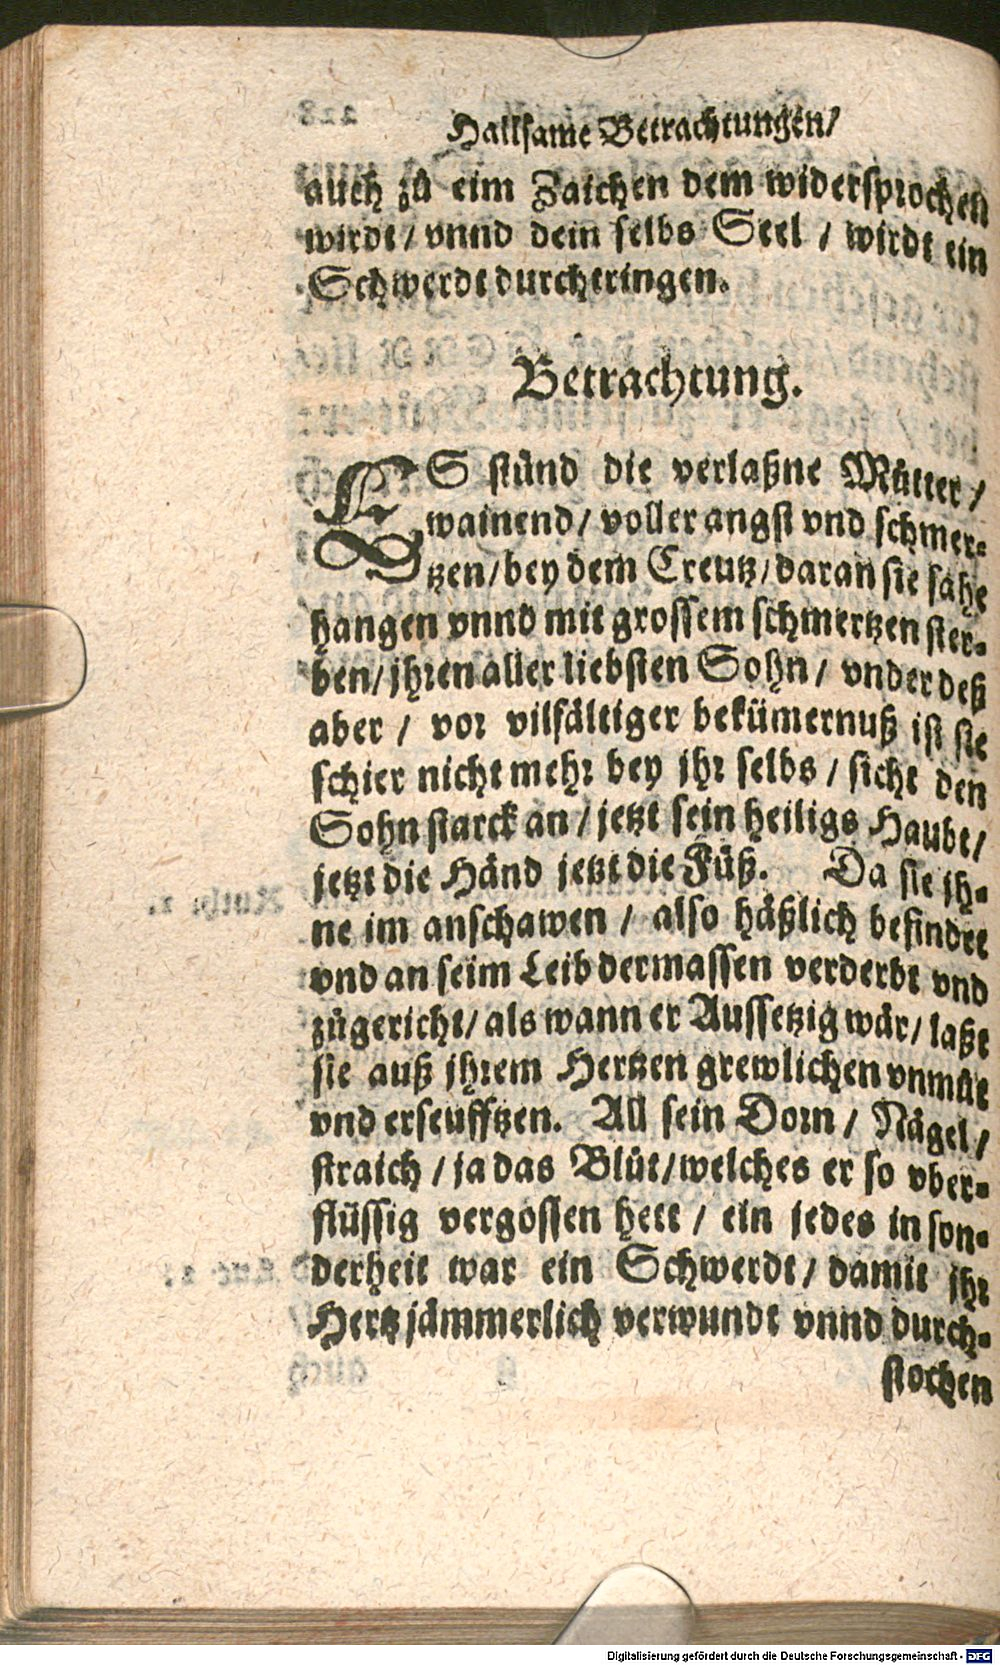 Hailsame Betrachtungen/
auch zů eim Zaichen dem widersprochen
wirdt / vnnd dein selbs Seel / wirdt ein
Schwerdt durchtringen.
Betrachtung.
ES stůnd die verlaßne Můtter /
wainend / voller angst vnd schmer-
tzen / bey dem Creutz / daran sie sahe
hangen vnnd mit grossem schmertzen ster-
ben / jhren aller liebsten Sohn / vnder deß
aber / vor vilfältiger bekümernuß ist sie
schier nicht mehr bey jhr selbs / sicht den
Sohn starck an / jetzt sein heiligs Haubt /
jetzt die Händ jetzt die Füß. Da sie jh-
ne im anschawen / also häßlich befindet
vnd an seim Leib dermassen verderbt vnd
zůgericht / als wann er Aussetzig wär / laßt
sie auß jhrem Hertzen grewlichen vnmůt
vnd erseufftzen. All sein Dorn / Nägel /
straich / ja das Blůt / welches er so vber-
flüssig vergossen hett / ein jedes in son-
derheit war ein Schwerdt / damit jhr
Hertz jämmerlich verwundt vnnd durch-
stochen
Digitalisierung gefördert durch die Deutsche Forschungsgemeinschaft - DFG